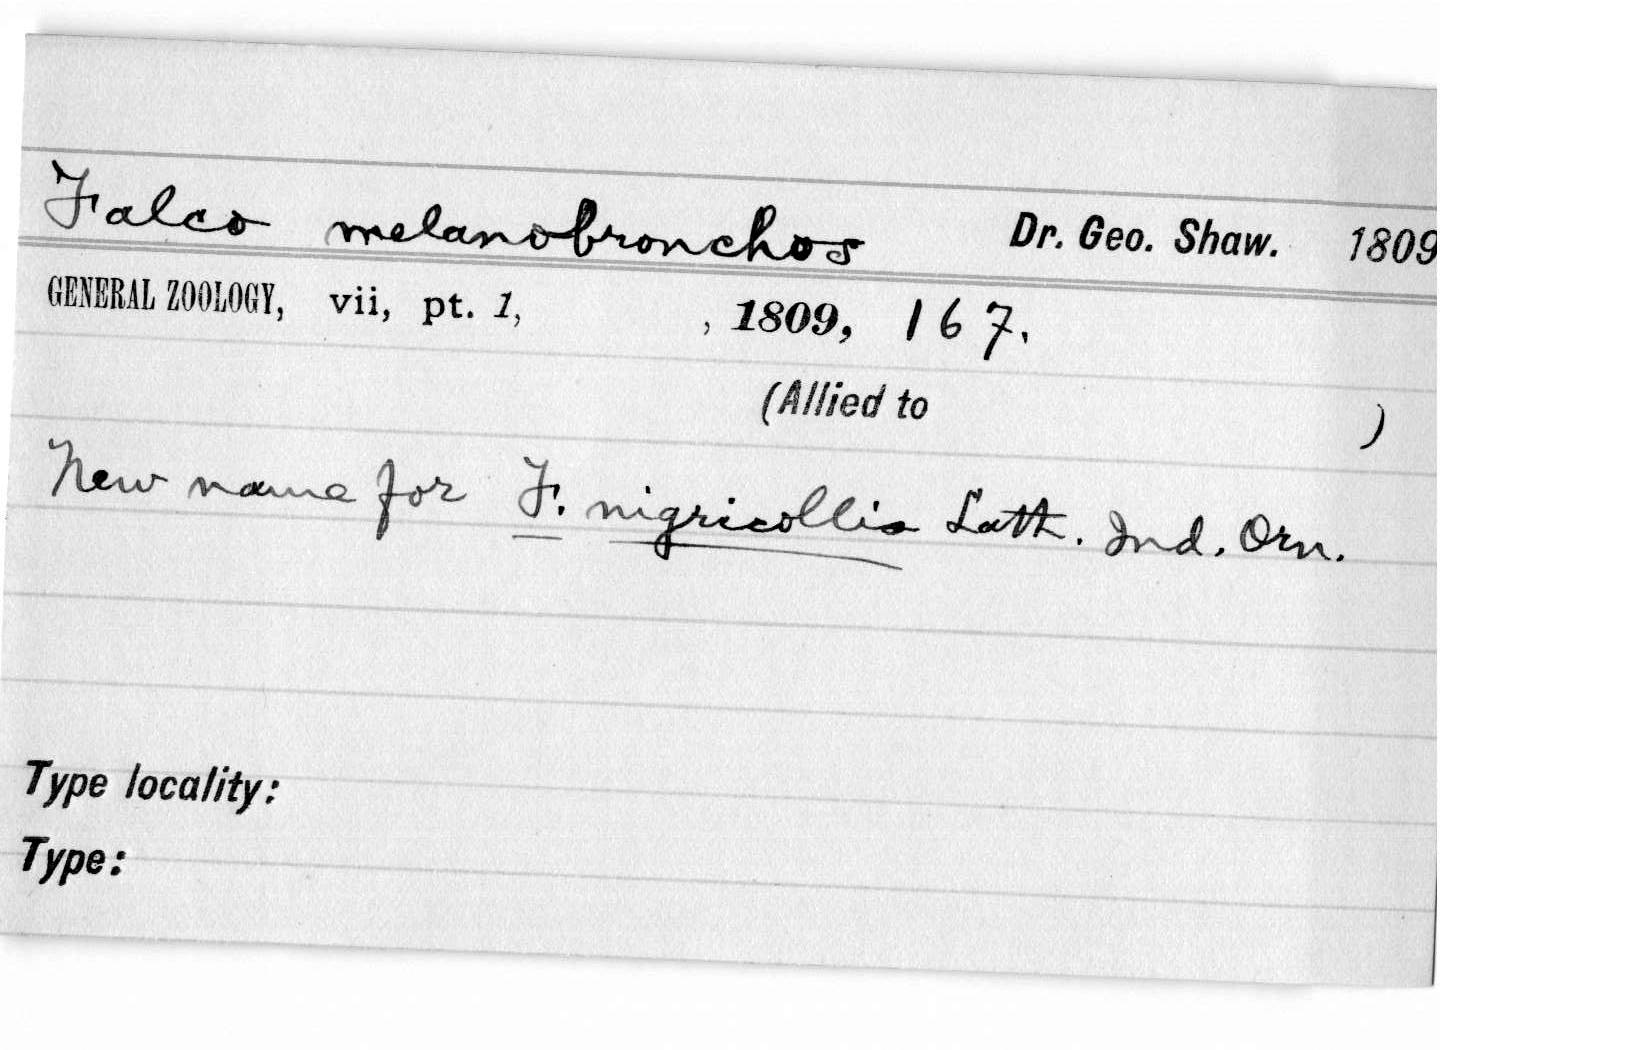 Falco melanobronchos Dr. Geo. Shaw. 1809
GENERAL ZOOLOGY, vii, pt. 1, , 1809, 167.
(Allied to )
New name for F. nigricollis Lath. Ind. Orn.
Type locality:
Type: